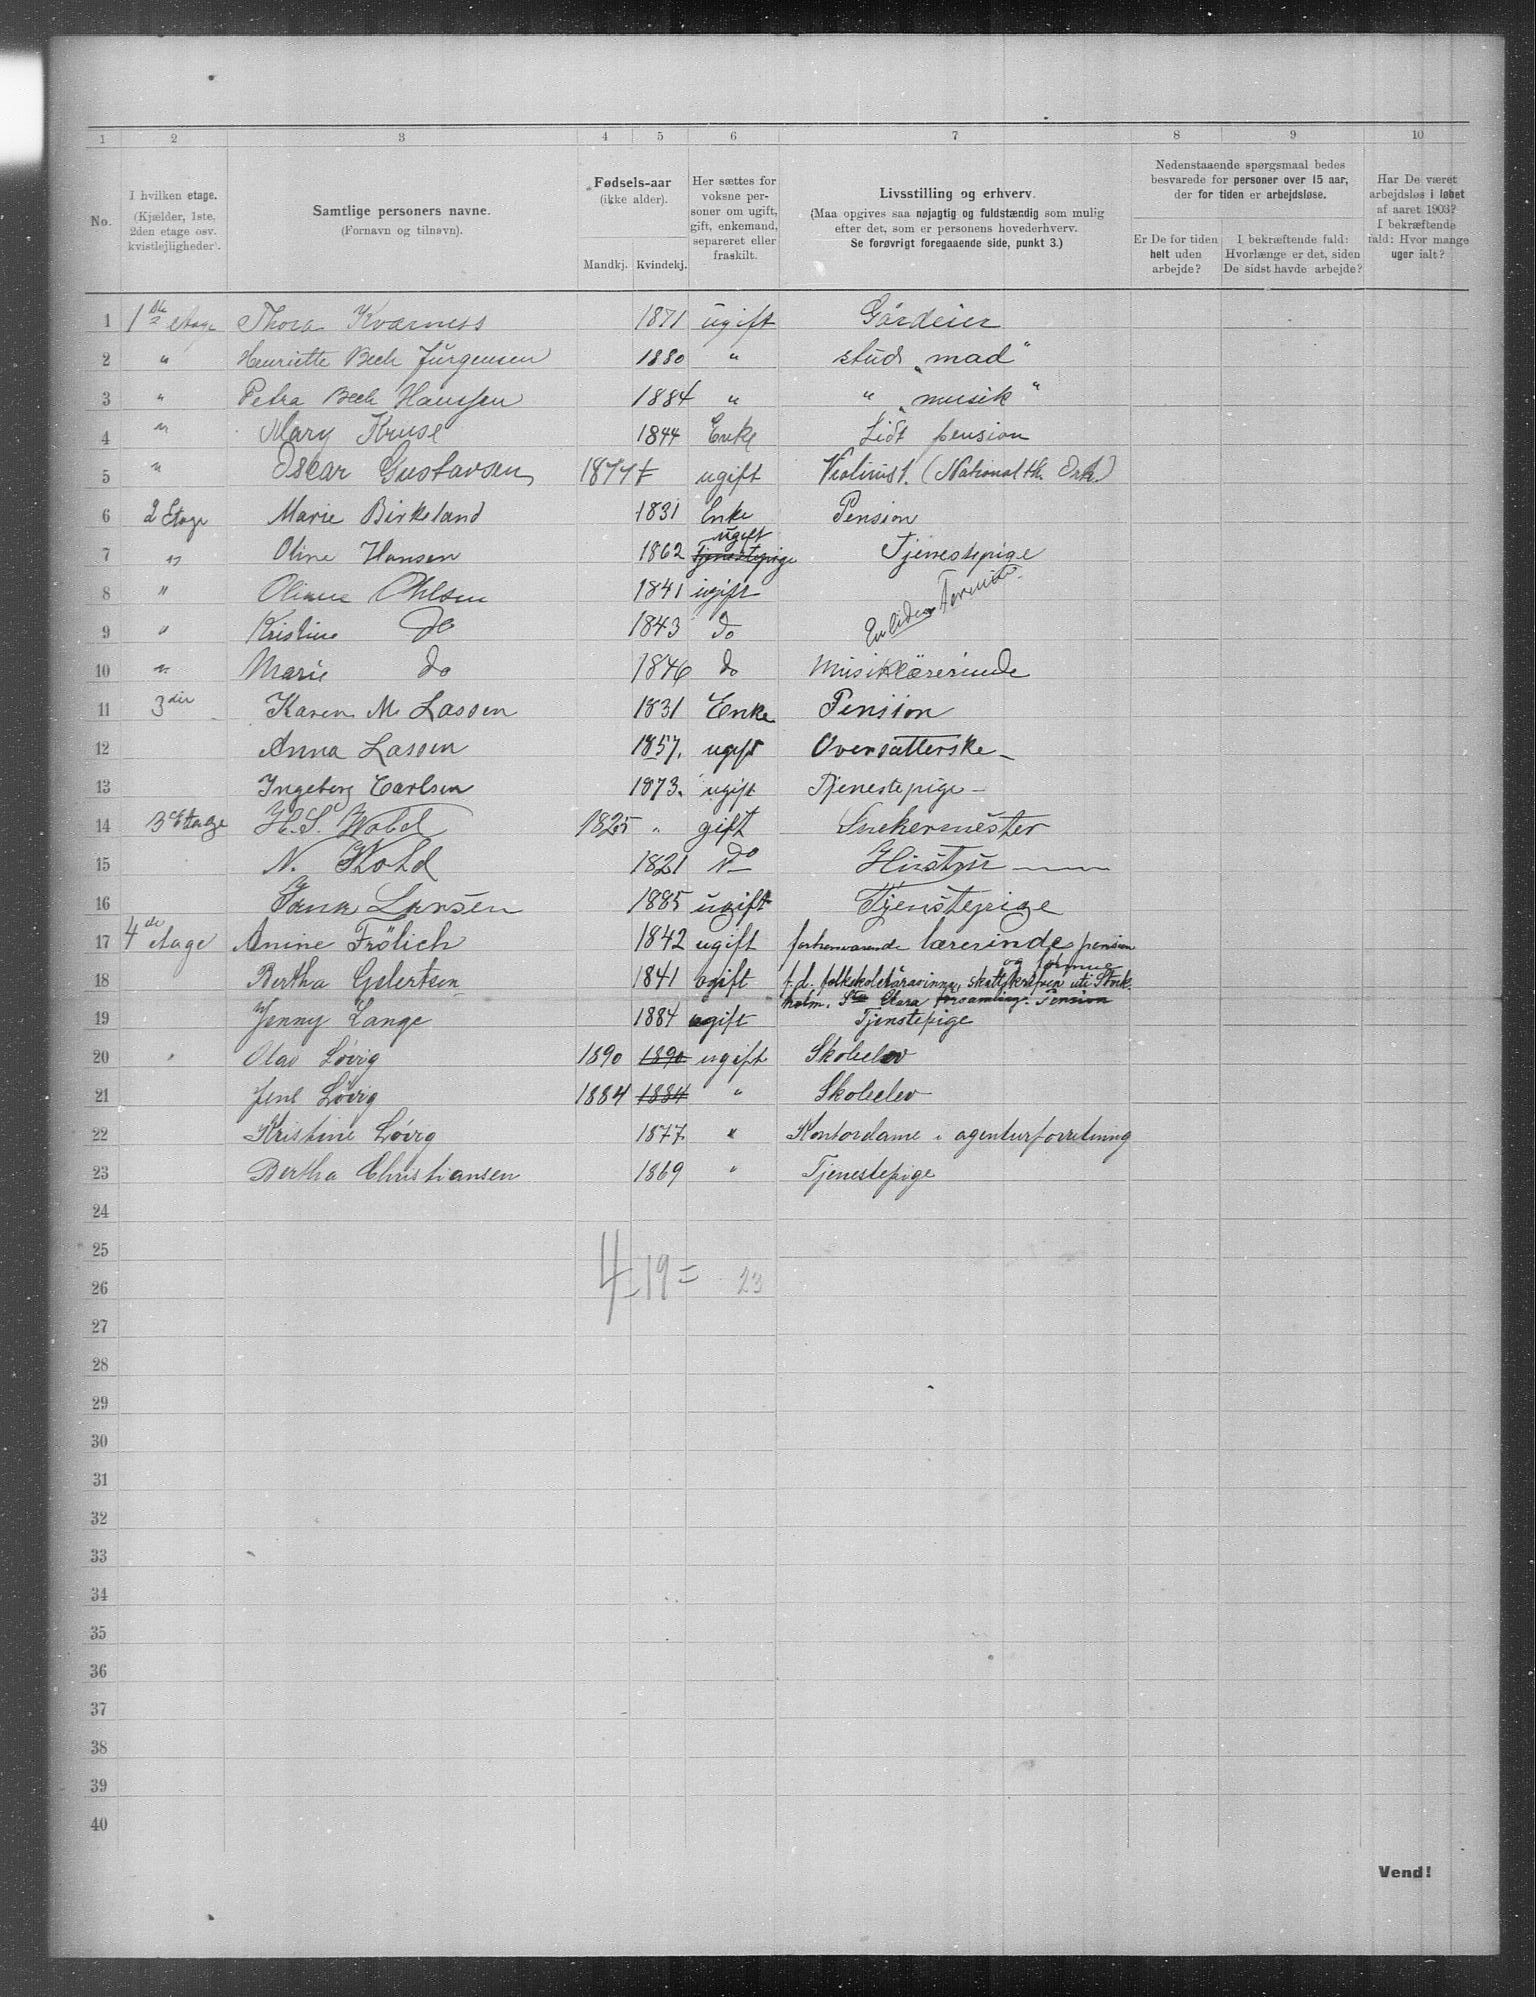 1 2 3 4 5 6 7 8 9 10
No.
I hvilken etage.
(Kjælder, 1ste,
2den etage osv.
kvistlejligheder).
Samtlige personers navne.
(Fornavn og tilnavn).
Fødsels-aar
(ikke alder).
Mandkj. Kvindekj.
Her sættes for
voksne per-
soner om ugift,
gift, enkemand,
separeret eller
fraskilt.
Livsstilling og erhverv.
(Maa opgives saa nøjagtig og fuldstændig som mulig
efter det, som er personens hovederhverv.
Se forøvrigt foregaaende side, punkt 3.)
Nedenstaaende spørgsmaal bedes
besvarede for personer over 15 aar,
der for tiden er arbejdsløse.
Er De for tiden
helt uden
arbejde?
I bekræftende fald:
Hvorlænge er det, siden
De sidst havde arbejde?
Har De været
arbejdsløs i løbet
af aaret 1903?
I bekræftende
fald: Hvor mange
uger ialt?
1 1ste etage Thora Kværness 1871 ugift Gårdeier
2 " Henriette Bech Jürgensen 1880 " stud "mad"
3 " Petra Bech Hanssen 1884 " " "musik"
4 " Mary Kruse 1844 Enke Lidt pension
5 " Oscar Gustavsen 1877 ugift Violinist. (Nationalth. Ork.)
6 2 Etage Marie Birkeland 1831 Enke Pension
7 " Oline Hansen 1862 ugift Tjenestepige Tjenestepige
8 " Ohlsen 1841 ugift
9 " Kristine Do 1843 do
10 " Marie do 1846 do Musiklärerinde
11 3die Karen M Lassen 1831 Enke Pension
12 Anna Lassen 1857. ugift Oversætterske
13 Ingeborg Carlsen 1873. ugift Tjenestepige
14 3 Etage H. S. 1825 " gift Snekermester
15 N. 1821 Do Hustru
16 Larsen 1885 ugift Tjenstepige
17 4de etage Anine Frölich 1842 ugift forhenværende lærerinde pension
og formue
18 Bertha Gelertsen 1841 ugift f.d. folkskolelärarinna, skattskrefven uti Stock
holm. Sta Clara församling. Pension
19 Jenny Lange 1884 ugift Tjenstepige
20 " Olav Løvig 1890 1890 ugift Skoleelev
21 Jens Løvig 1884 1884 " Skoleelev
22 Kristine Løvig 1877 " Kontordame i agenturforretning
23 Bertha Christiansen 1869 " Tjenestepige
24
25
4 - 19 = 23
26
27
28
29
30
31
32
33
34
35
36
37
38
39
40
Vend!